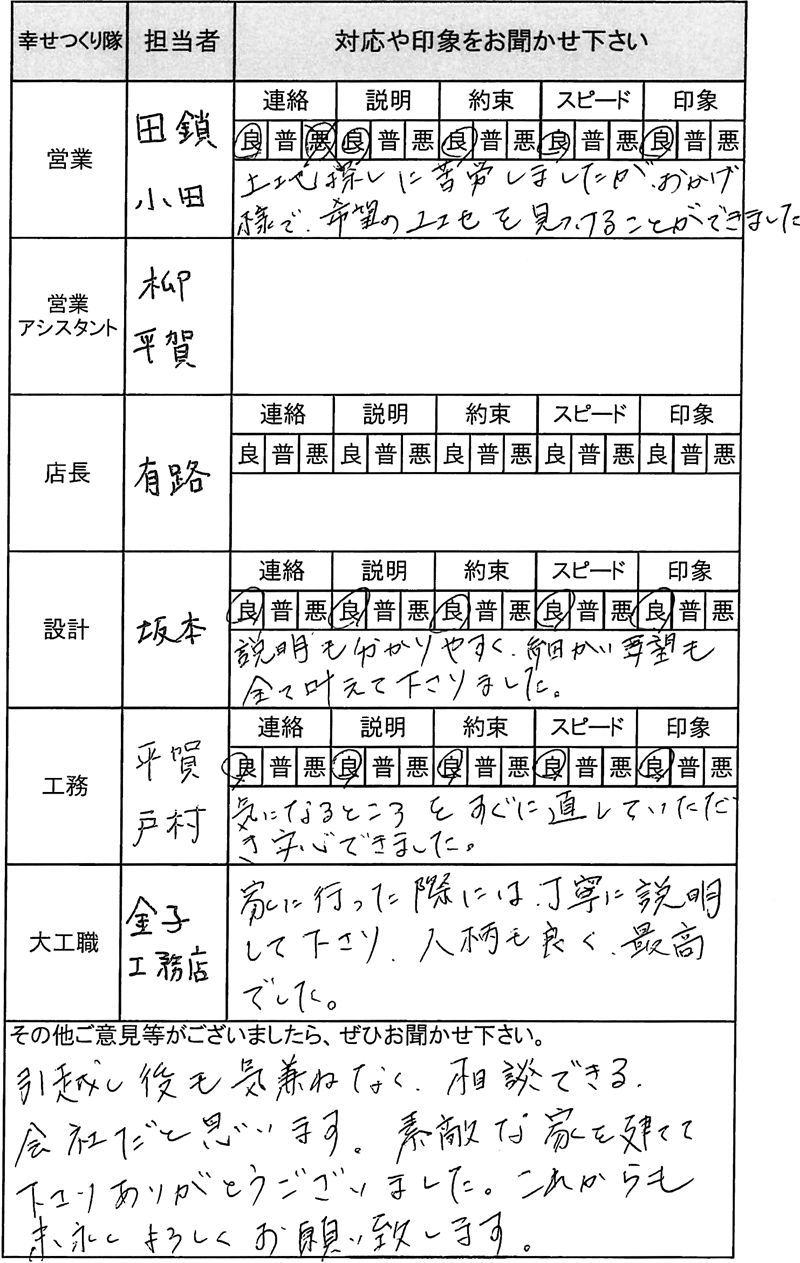 幸せつくり隊 担当者 対応や印象をお聞かせ下さい
営業 田鎖 小田
連絡 説明 約束 スピード 印象
良 普 悪 良 普 悪 良 普 悪 良 普 悪 良 普 悪
土地探しに苦労しましたが、おかげ
様で、希望の土地を見つけることができました
営業
アシスタント
柳
平賀
店長 有路
連絡 説明 約束 スピード 印象
良 普 悪 良 普 悪 良 普 悪 良 普 悪 良 普 悪
設計 坂本
連絡 説明 約束 スピード 印象
良 普 悪 良 普 悪 良 普 悪 良 普 悪 良 普 悪
説明も分かりやすく、細かい要望も
全て叶えて下さりました。
工務 平賀 戸村
連絡 説明 約束 スピード 印象
良 普 悪 良 普 悪 良 普 悪 良 普 悪 良 普 悪
気になるところをすぐに直していただ
き安心できました。
大工職 金子
工務店
家に行った際には、丁寧に説明
して下さり、人柄も良く、最高
でした。
その他ご意見等がございましたら、ぜひお聞かせ下さい。
引越し後も気兼ねなく、相談できる、
会社だと思います。素敵な家を建てて
下さりありがとうございました。これからも
末永くよろしくお願い致します。